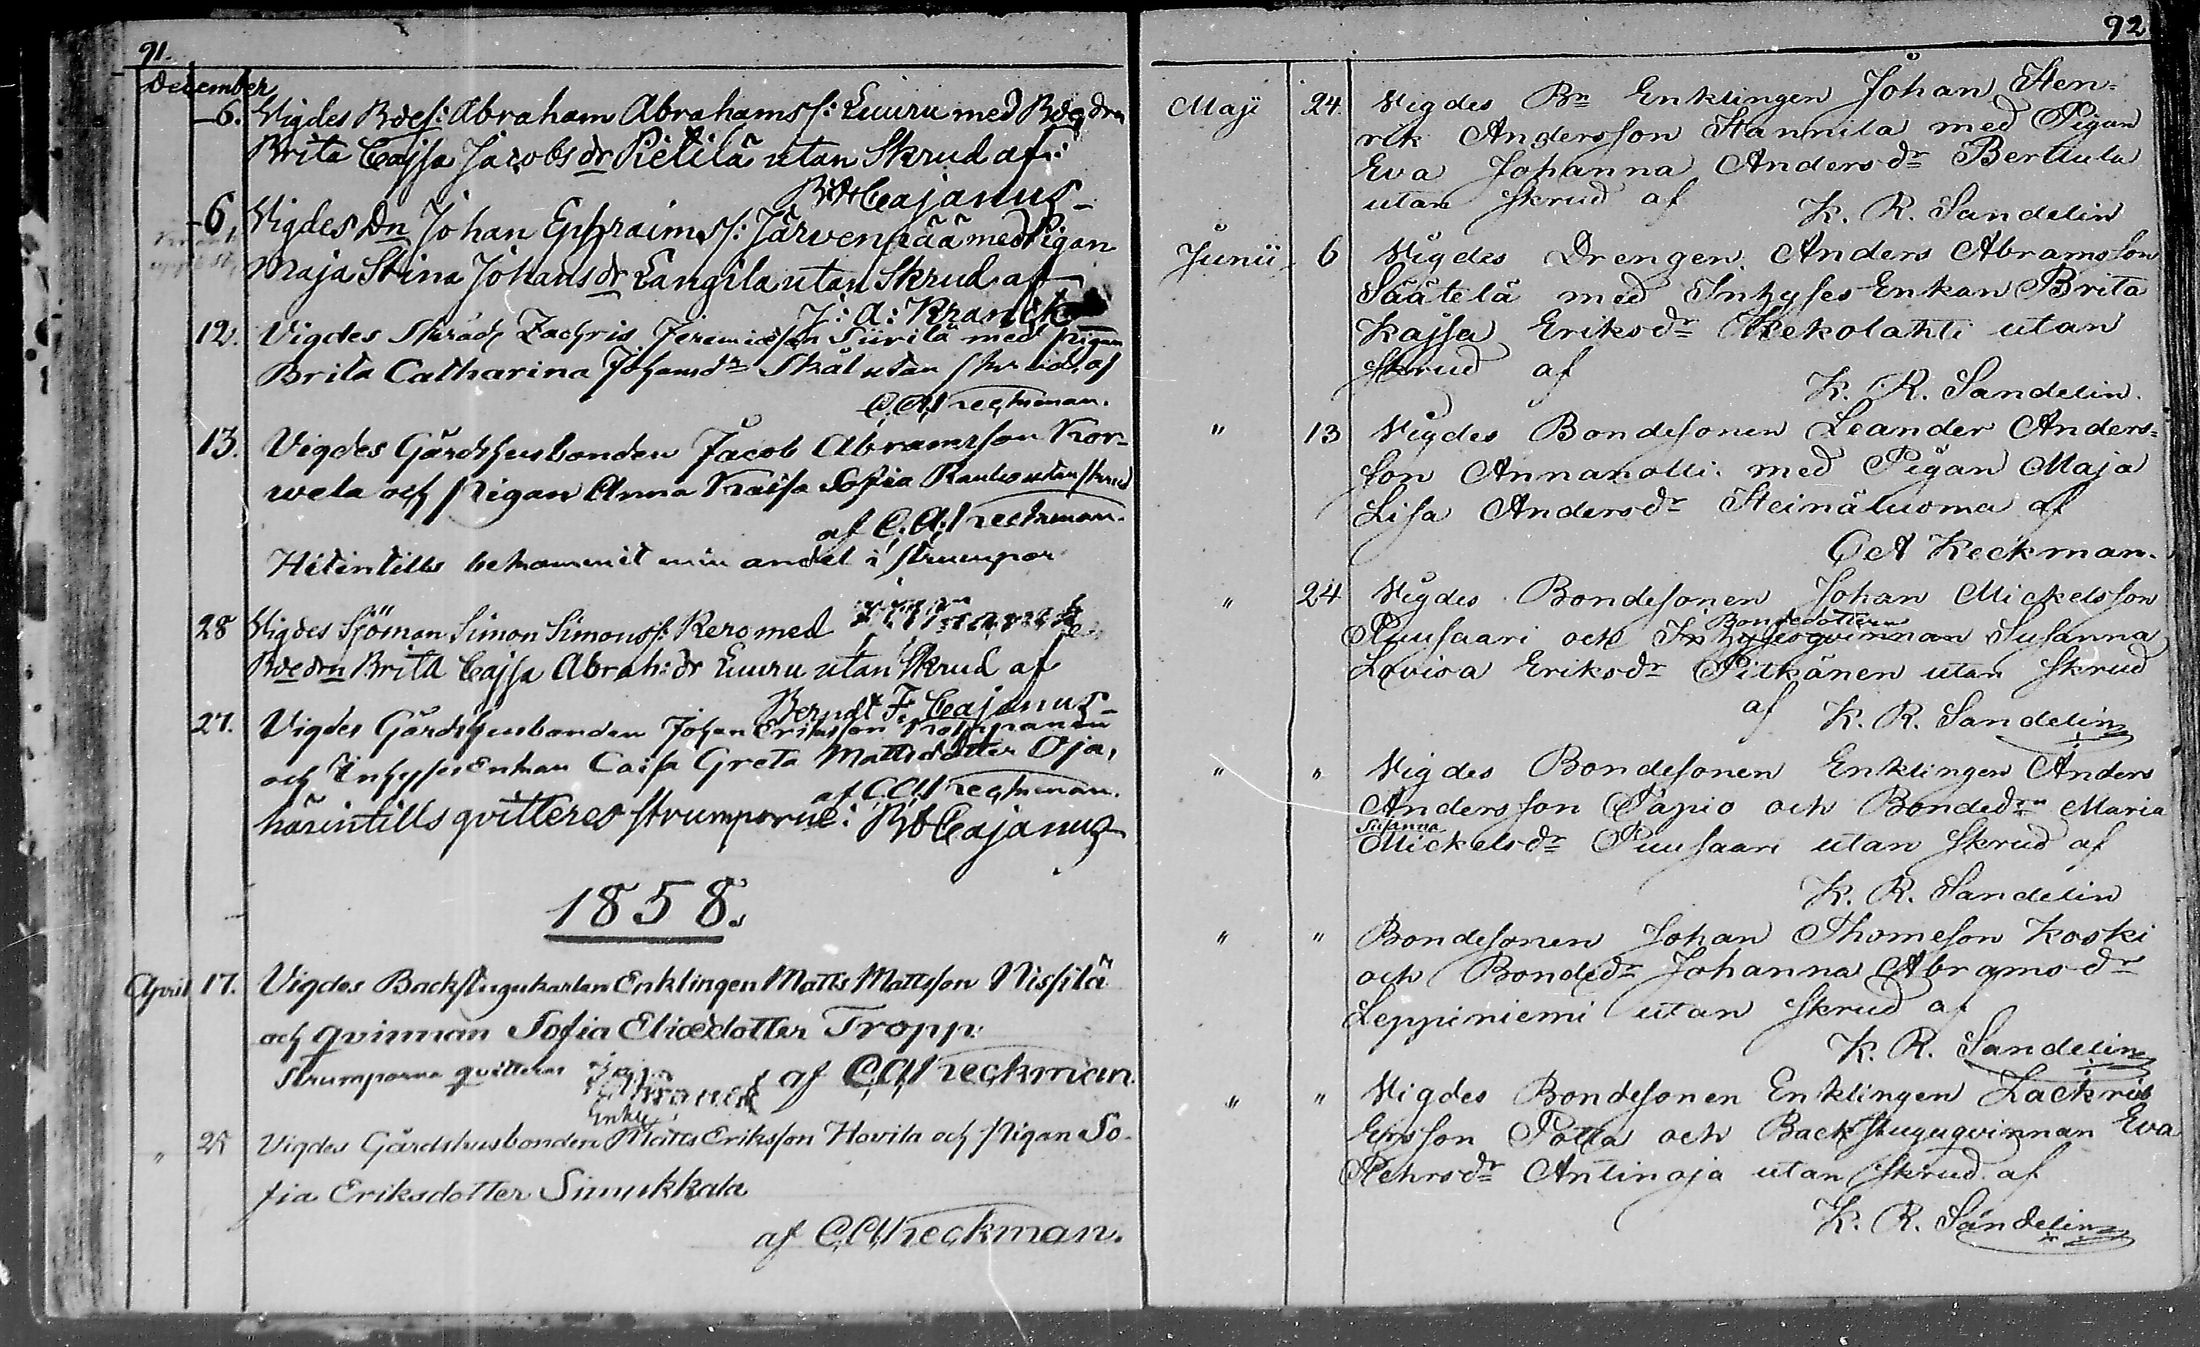 91.
December
6. Vigdes Bdes: Abraham Abrahamss: Luuru med Bdedrn
Brita Cajsa Jacobsdr Pietilä utan Skrud af:
Cajanus
6 Vigdes Dn Johan Ephraimss: Järvenpää med Pigan
Maja Stina Johansdr Langila utan Skrud af
J: A: Kranck
12. Vigdes Zachris Jeremiæson Siirilä med Pigan
Brita Catharina Johansdr Skål utan skrud, af
C. A. Keckman.
13. Vigdes Gårdshusbonden Jacob Abramsson Kor-
wela och Pigan Anna Kaisa Sofia utan skrud
af C. A. Keckman.
Hitintills bekommit min andel i strumpor
28 Vigdes Sjöman Simon Simonss: Kero med
Bdedrn Brita Cajsa Abrah:dr Luuru utan Skrud af
Berndt F. Cajanus
27. Vigdes Gårdshusbonden Johan Eriksson
och Inhyses Enkan Caisa Greta Mattsdotter Oja,
af C. A. Keckman.
härintills qvitteras strumporne: Cajanus
1858.
April 17. Vigdes Backstugukarlen Enklingen Matts Mattsson Nissilä
och qvinnan Sofia Eliædotter Tropp.
Strumporna qvitteras af C. A. Keckman
Kranck
Enkl.
" 25 Vigdes Gårdshusbonden Matts Eriksson Hovila och Pigan So-
fia Eriksdotter Simukkala
af C. A. Keckman.
92
Maji 24. Vigdes Bn Enklingen Johan Hen-
rik Andersson Hannila med Pigan
Eva Johanna Andersdr Berttula
utan skrud af
K. R. Sandelin
Junii 6 Vigdes Drengen Anders Abramsson
Säätelä med Inhyses Enkan Brita
Kajsa Eriksdr Kekolahti utan
skrud af
K. R. Sandelin.
" 13 Vigdes Bondesonen Leander Anders-
son Annanolli med Pigan Maja
Lisa Andersdr Heinäluoma af
C A Keckman.
" 24 Vigdes Bondesonen Johan Mickelsson
Bondedottern
Puusaari och Inhysesqvinnan Susanna
Lovisa Eriksdr Pitkänen utan skrud
af K. R. Sandelin
" " Vigdes Bondesonen Enklingen Anders
Andersson Papio och Bondedrn Maria
Susanna
Mickelsdr Puusaari utan skrud af
K. R. Sandelin
" " Bondesonen Johan Thomeson Koski
och Bondedr Johanna Abramsdr
Leppiniemi utan skrud af
K. R. Sandelin
" " Vigdes Bondesonen Enklingen Zackris
Ersson och Backstuguqvinnan Eva
Pehrsdr Antinoja utan skrud af
K. R. Sandelin